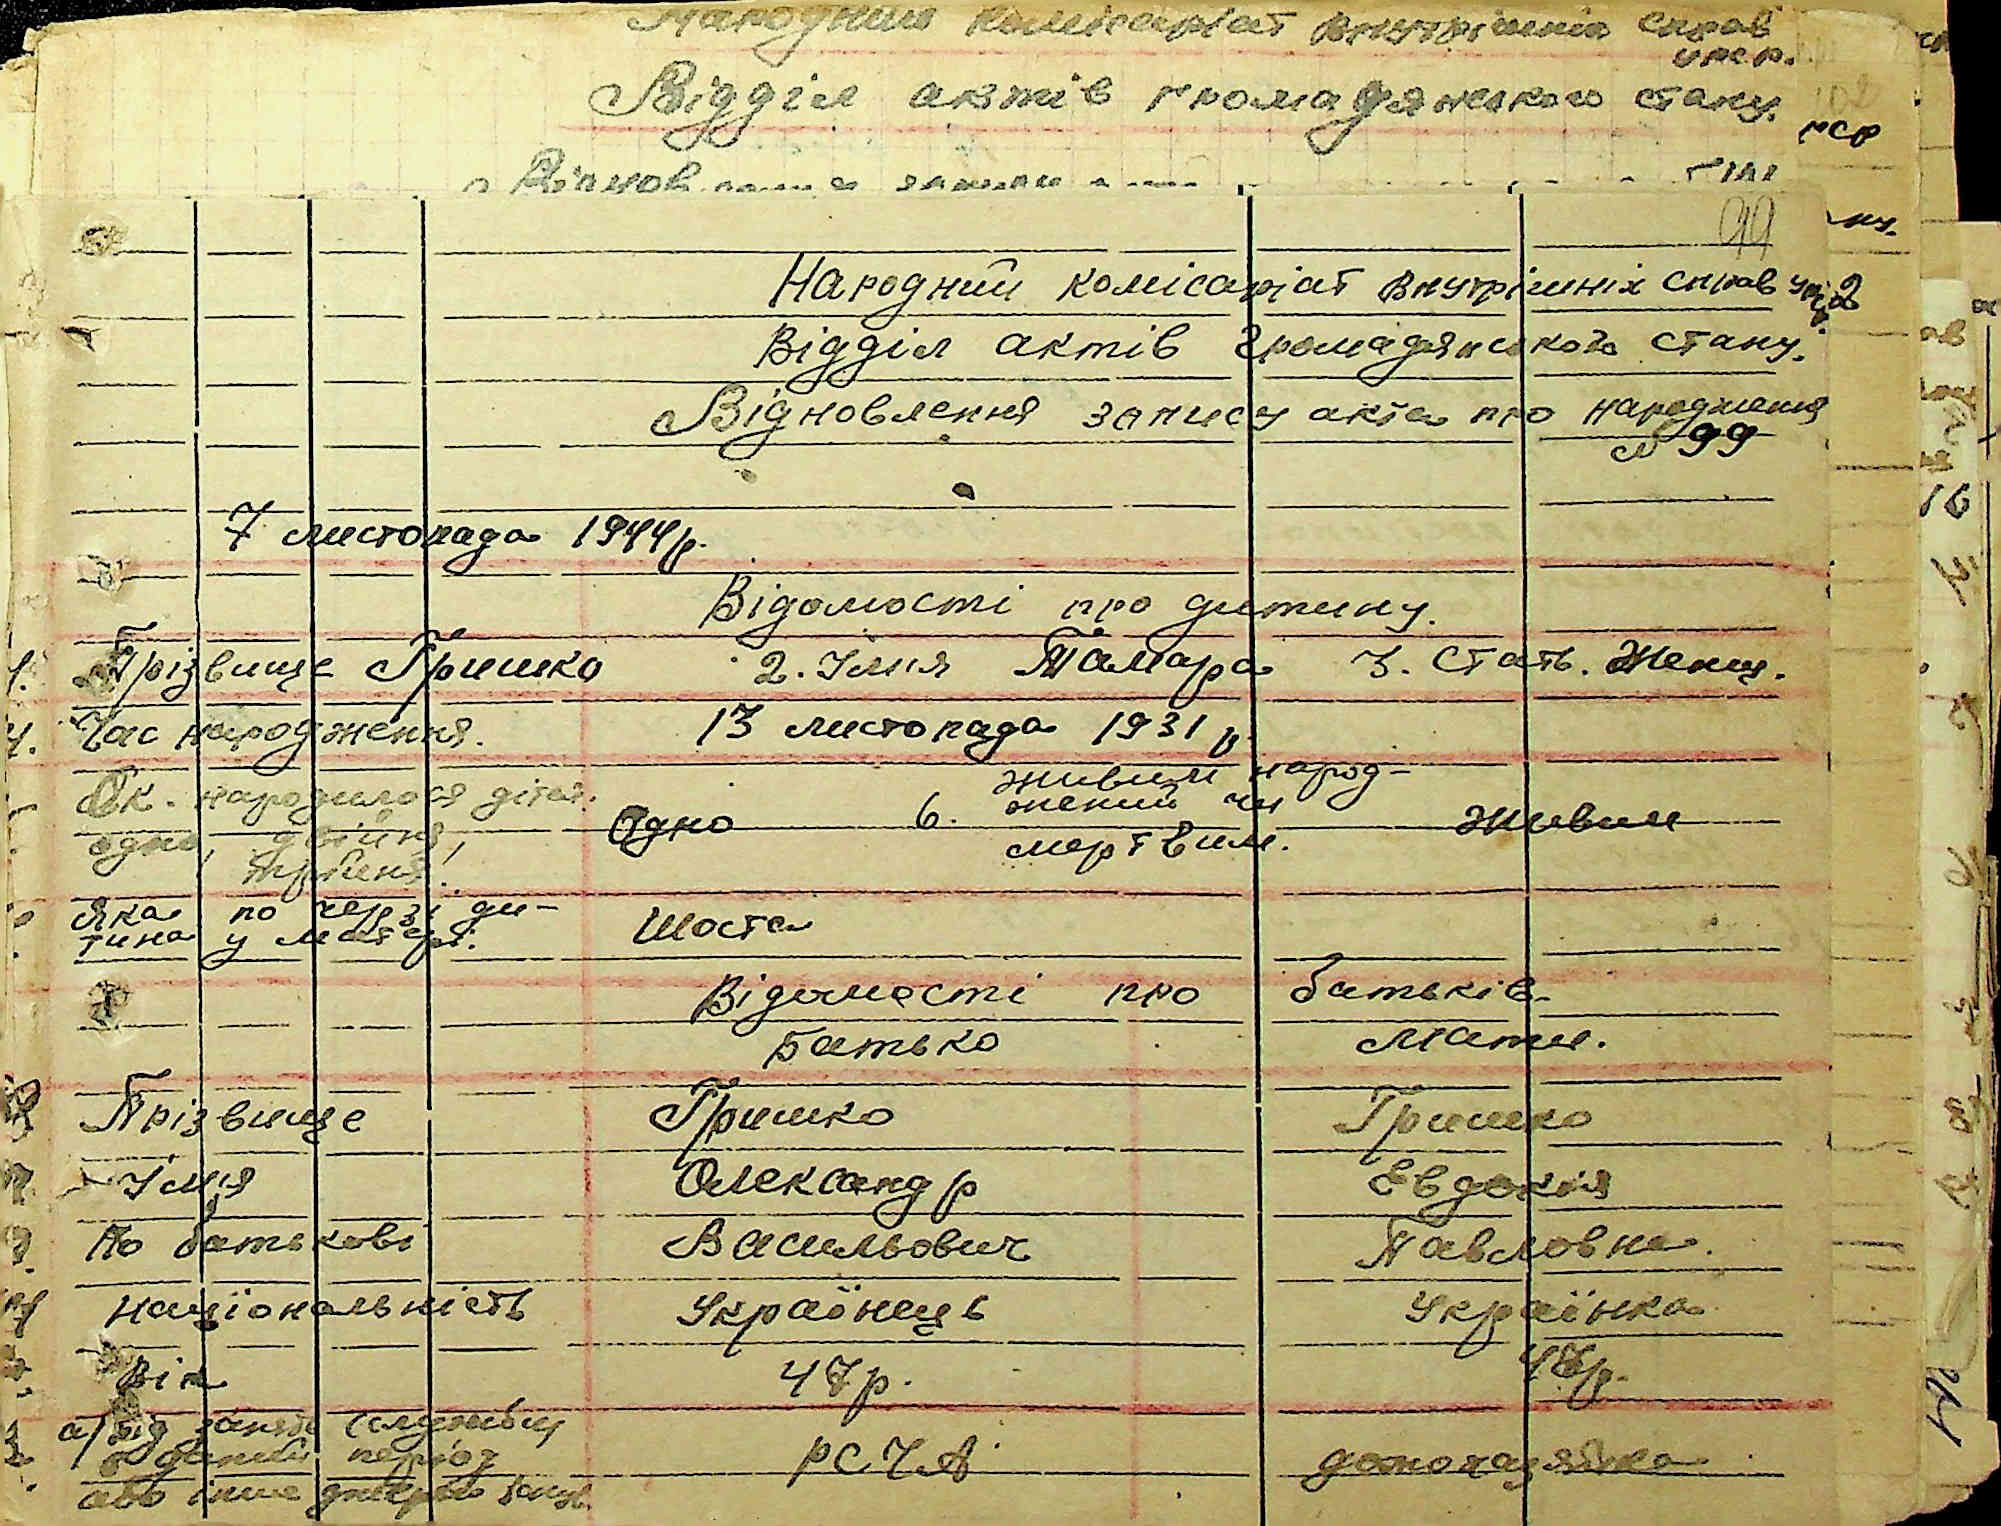 Народний комісаріат внутрішніх справ
УРСР.
Відділ актів громадянського стану.
99
Народний комісаріат внутрішніх справ
Відділ актів громадянського стану.
Відновлення запису акта про народження
№ 99
7 листопада 1944 р.
Відомості про дитину.
1. Прізвище Гришко 2. Імя Тамара 3. Стать. Женщ.
4. Час народження. 13 листопада 1931 р.
Ск. народилося дітей. живим народ-
одно, двійня, Одно 6. жений чи Живим
трійня. мертвим.
Яка по черзі ди-
тина у матері. Шоста
Відомості про батьків.
Батько Мати.
Прізвище Гришко Гришко
Імя Олександр Евдокія
По батькові Васильович Павловна.
Національність Українець Українка
Вік 47 р.
а) Від занять (служби
в даний період РСЧА домохазяйка
або інше джерело